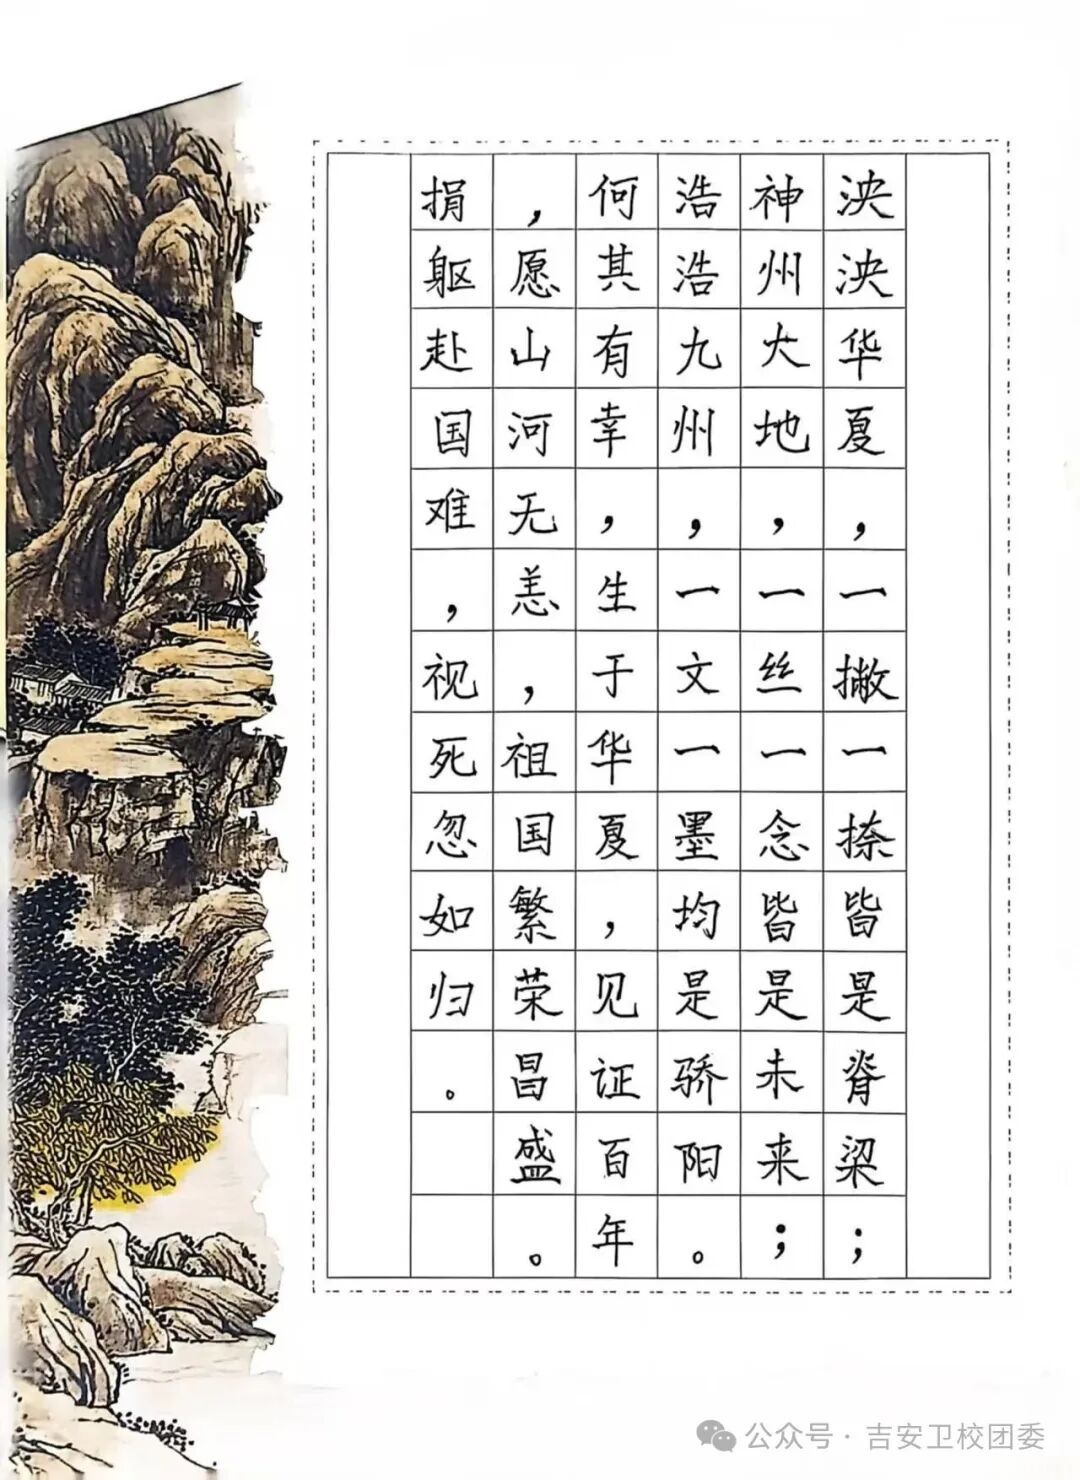 泱泱华夏，一撇一捺皆是脊梁；
神州大地，一丝一念皆是未来；
浩浩九州，一文一墨均是骄阳。
何其有幸，生于华夏，见证百年
，愿山河无恙，祖国繁荣昌盛。
捐躯赴国难，视死忽如归。
公众号·吉安卫校团委